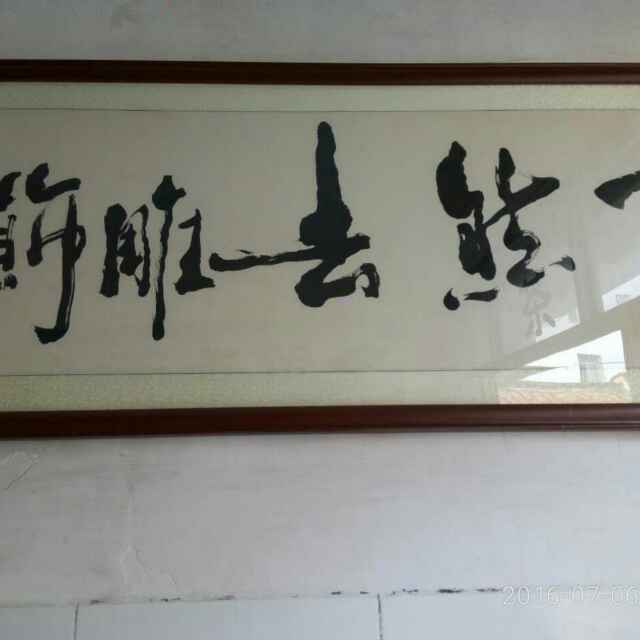 然去雕飾
2016-07-06